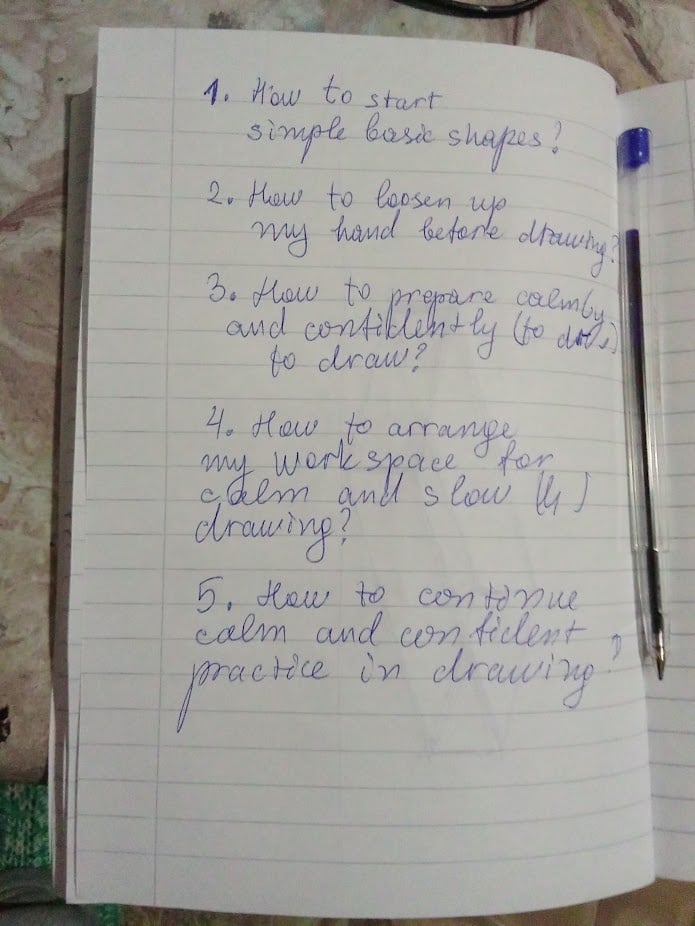 1. How to start
simple basic shapes?
2. How to loosen up
my hand before drawing?
3. How to prepare calmly
and confidently (to
to draw?
4. How to arrange
my workspace for
calm and slow (ly)
drawing?
5. How to continue
calm and confident
practice in drawing?